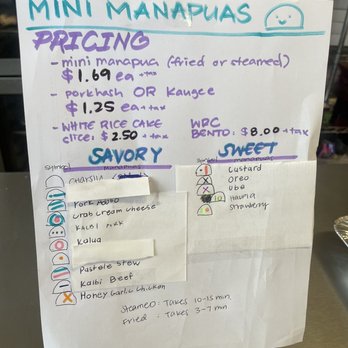 MINI MANAPUAS
PRICING
- mini manapua (fried or steamed)
$1.69 ea + tax
- porkhash OR Kaugee
$1.25 ea + tax
- WHITE RICE CAKE
slice: $2.50 + tax
WRC
BENTO: $8.00 + tax
SAVORY
Symbol MANAPUAS
Charsiu
Pork Adobo
Crab Cream Cheese
Kalbi Pork
Kalua
Pastele Stew
Kalbi Beef
Honey Garlic Chicken
SWEET
Symbol MANAPUAS
Custard
Oreo
Ube
Haupia
Strawberry
Steamed: Takes 10-15 min.
Fried: Takes 3-7 min